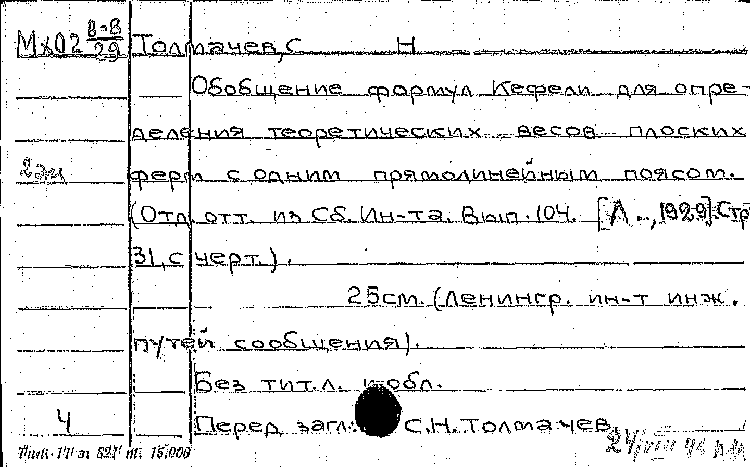 Мх02 8-8/29 Толмачев, С Н
Обобщение формул Кефели для опре-
деления теоретических весов плоских
2 эк ферм с одним прямолинейным поясом.
(Отд. отт. из Сб. Ин-та. Вып. 104. [Л .., 1929]. Стр
31, с черт.).
25см. (Ленингр. ин-т инж.
путей сообщения).
Без тит.л. и обл.
4 Перед загл.: С.Н.Толмачев.
15,000